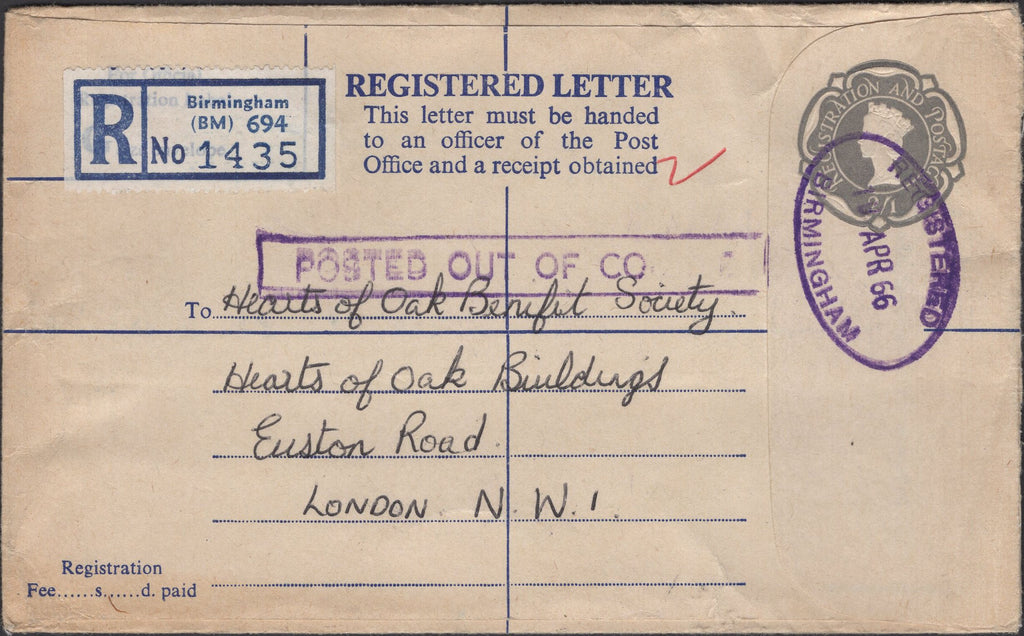 R
Birmingham
(BM) 694
No 1435
REGISTERED LETTER
This letter must be handed
to an officer of the Post
Office and a receipt obtained
REGISTRATION AND POSTAGE
REGISTERED
APR 66
BIRMINGHAM
POSTED OUT OF CO
To Hearts of Oak Benefit Society
Hearts of Oak Buildings
Euston Road.
LONDON N.W.1.
Registration
Fee......s......d. paid